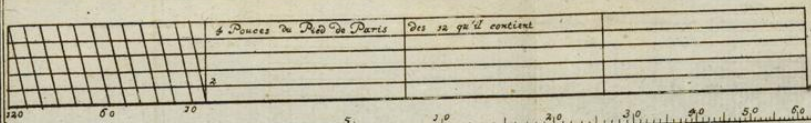 4 Pouces du Pied de Paris des 12 qu'il contient
2
120 60 10
5 10 20 30 40 50 60